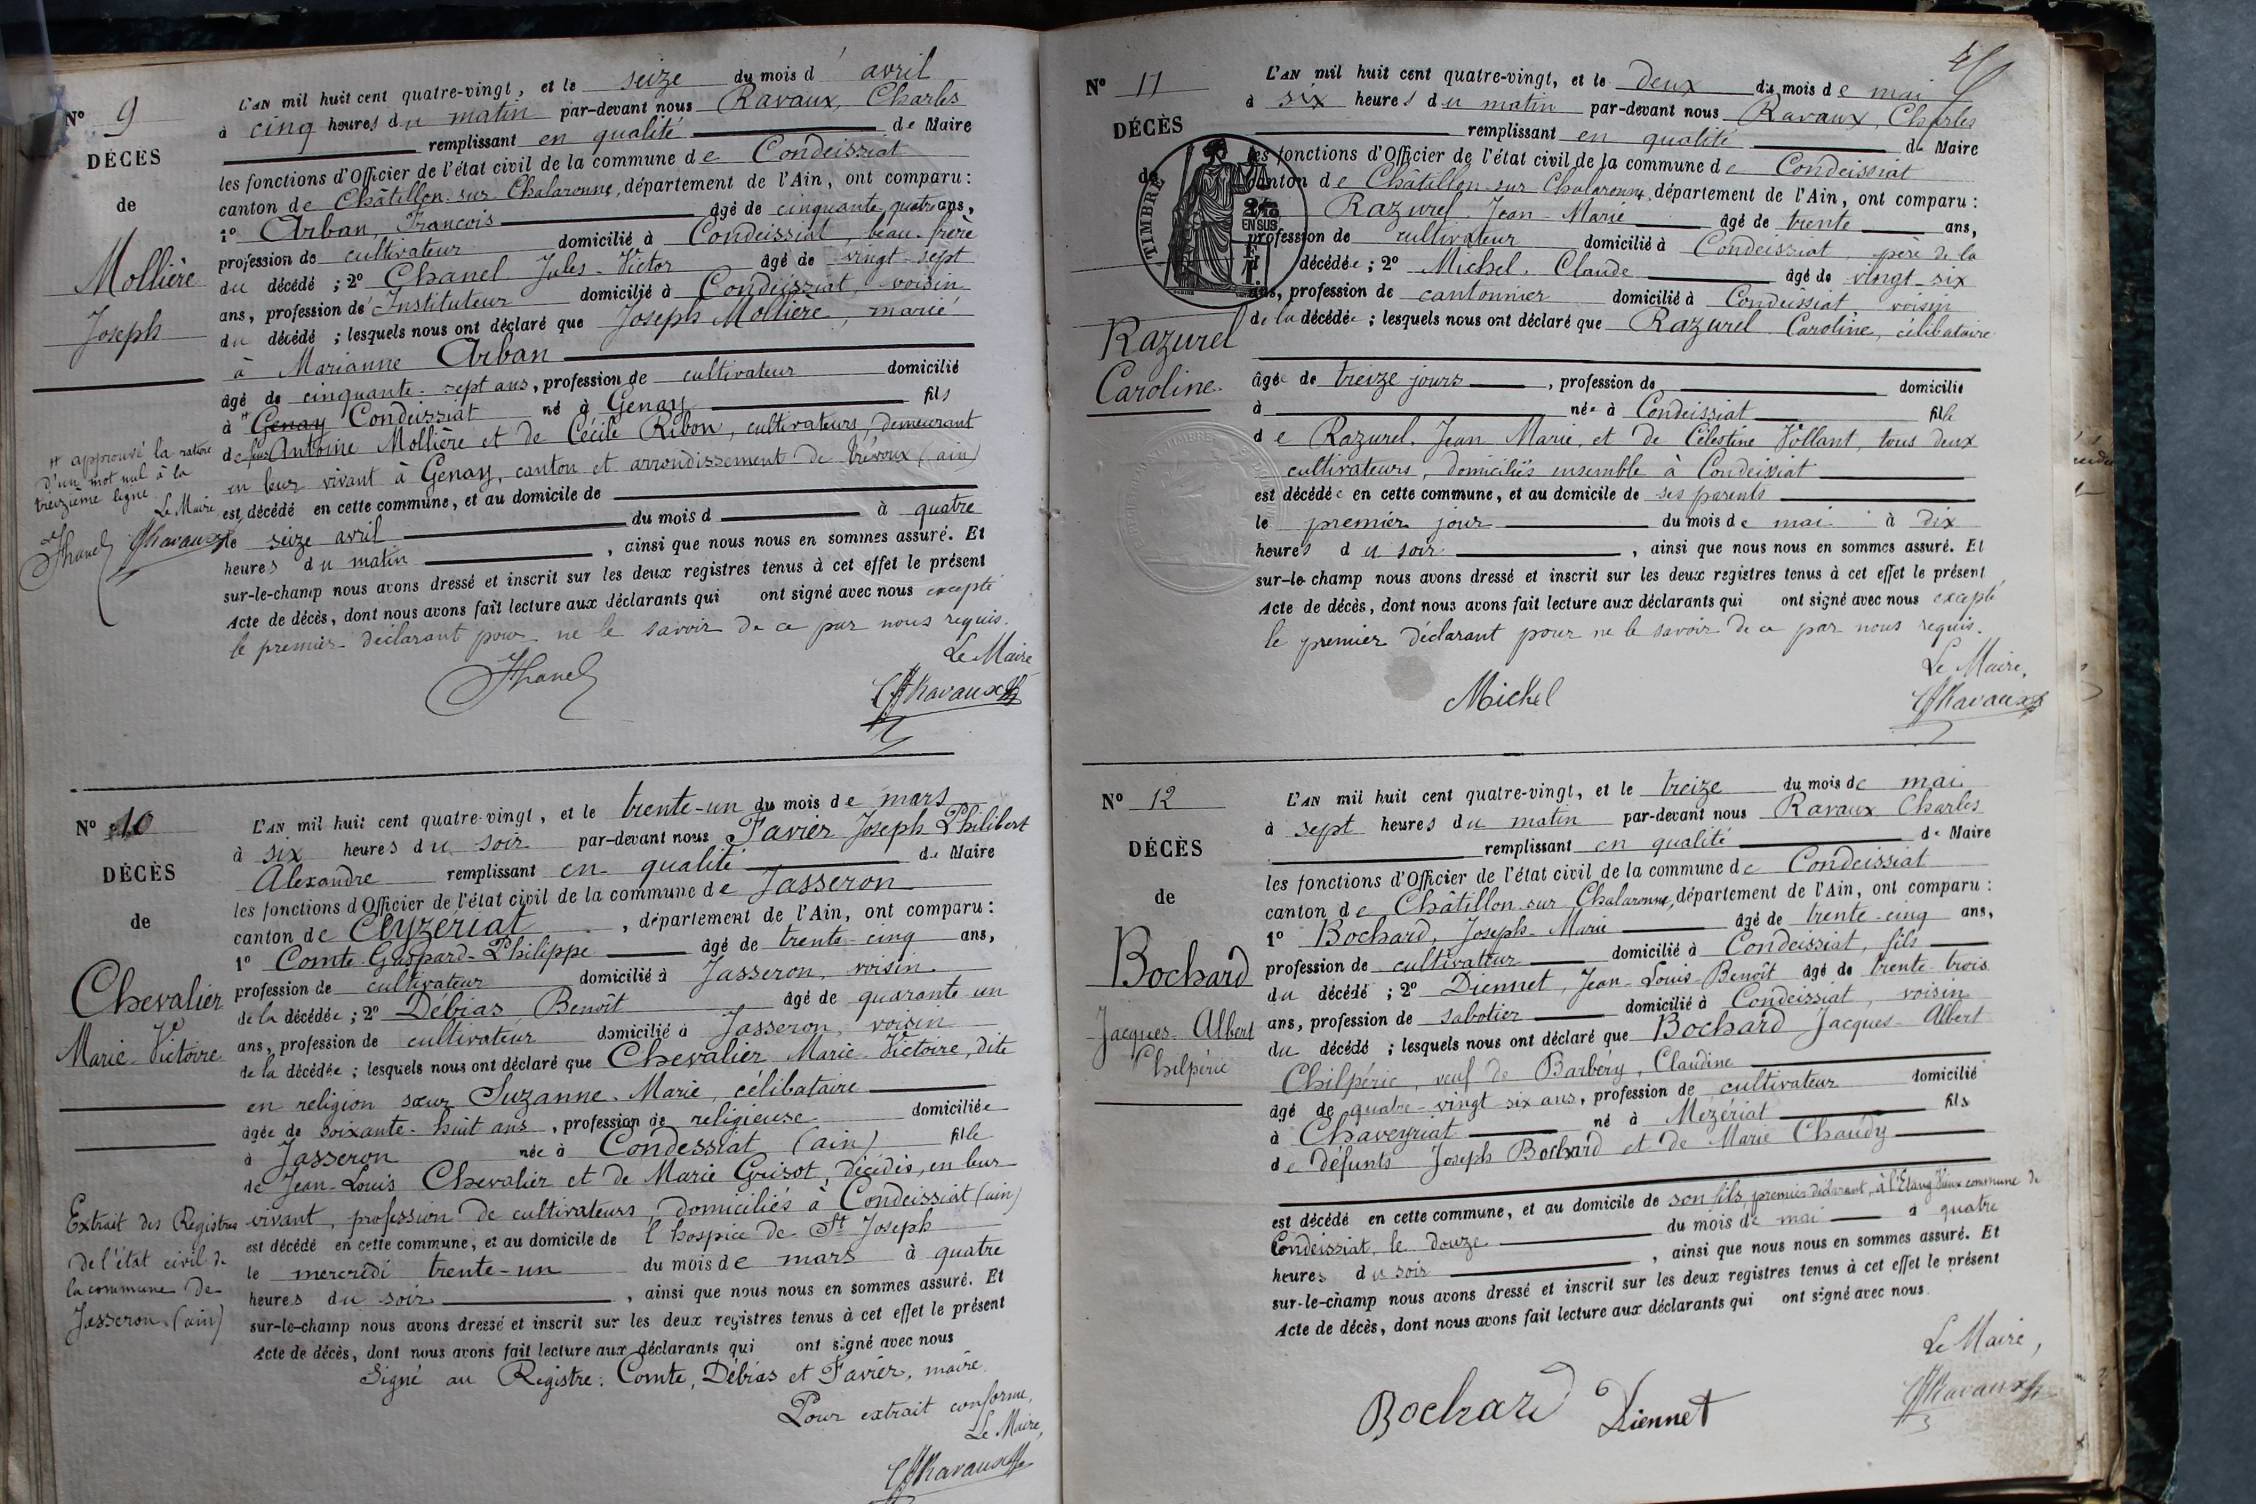 Nº 9
DÉCÈS
de
Mollière
Joseph
L'AN mil huit cent quatre-vingt, et le seize du mois d'avril
à cinq heures du matin par-devant nous Ravaux, Charles
remplissant en qualité de Maire
les fonctions d'Officier de l'état civil de la commune de Condeissiat
canton de Châtillon-sur-Chalaronne, département de l'Ain, ont comparu :
1º Arban, François âgé de cinquante quatre ans,
profession de cultivateur domicilié à Condeissiat, beau-frère
du décédé ; 2º Chanel Jules-Victor âgé de vingt-sept
ans, profession de Instituteur domicilié à Condeissiat, voisin
du décédé ; lesquels nous ont déclaré que Joseph Mollière, marié
à Marianne Arban
âgé de cinquante-sept ans, profession de cultivateur domicilié
à Genay Condeissiat né à Genay fils
de feus Antoine Mollière et de Cécile Ribon, cultivateurs, demeurant
en leur vivant à Genay, canton et arrondissement de Trévoux (ain)
est décédé en cette commune, et au domicile de
le seize avril du mois d à quatre
heures du matin, ainsi que nous nous en sommes assuré. Et
sur-le-champ nous avons dressé et inscrit sur les deux registres tenus à cet effet le présent
Acte de décès, dont nous avons fait lecture aux déclarants qui ont signé avec nous excepté
le premier déclarant pour ne le savoir de ce par nous requis.
approuvé la rature
d'un mot nul à la
treizième ligne.
Le Maire
Le Maire
Nº 10
DÉCÈS
de
Chevalier
Marie-Victoire
L'AN mil huit cent quatre-vingt, et le trente-un du mois de mars
à six heures du soir par-devant nous Favier Joseph Philibert
Alexandre remplissant en qualité de Maire
les fonctions d'Officier de l'état civil de la commune de Jasseron
canton de Ceyzériat, département de l'Ain, ont comparu :
1º Comte Gaspard-Philippe âgé de trente-cinq ans,
profession de cultivateur domicilié à Jasseron, voisin
de la décédée ; 2º Débias, Benoît âgé de quarante-un
ans, profession de cultivateur domicilié à Jasseron, voisin
de la décédée ; lesquels nous ont déclaré que Chevalier Marie-Victoire, dite
en religion sœur Suzanne-Marie, célibataire
âgée de soixante-huit ans, profession de religieuse domiciliée
à Jasseron née à Condessiat (ain) fille
de Jean-Louis Chevalier et de Marie Guisot, décédés, en leur
vivant, profession de cultivateurs, domiciliés à Condeissiat (ain)
est décédé en cette commune, et au domicile de l'hospice de St Joseph
le mercredi trente-un du mois de mars à quatre
heures du soir, ainsi que nous nous en sommes assuré. Et
sur-le-champ nous avons dressé et inscrit sur les deux registres tenus à cet effet le présent
Acte de décès, dont nous avons fait lecture aux déclarants qui ont signé avec nous
Signé au Registre : Comte, Débias et Favier, maire.
Pour extrait conforme,
Le Maire,
Extrait des Registres
de l'état civil de
la commune de
Jasseron (ain)
Nº 11
DÉCÈS
de
Razurel
Caroline.
TIMBRE
2/10
EN SUS
L'AN mil huit cent quatre-vingt, et le deux du mois de mai
à six heures du matin par-devant nous Ravaux, Charles
remplissant en qualité de Maire
les fonctions d'Officier de l'état civil de la commune de Condeissiat
canton de Châtillon-sur-Chalaronne, département de l'Ain, ont comparu :
Razurel, Jean-Marie âgé de trente ans,
profession de cultivateur domicilié à Condeissiat, père de la
décédée ; 2º Michel, Claude âgé de vingt-six
ans, profession de cantonnier domicilié à Condeissiat voisin
de la décédée ; lesquels nous ont déclaré que Razurel Caroline, célibataire
âgée de treize jours, profession de domicilié
à née à Condeissiat fille
de Razurel, Jean Marie, et de Célestine Vollant, tous deux
cultivateurs, domiciliés ensemble à Condeissiat
est décédée en cette commune, et au domicile de ses parents
le premier jour du mois de mai à dix
heures du soir, ainsi que nous nous en sommes assuré. Et
sur-le-champ nous avons dressé et inscrit sur les deux registres tenus à cet effet le présent
Acte de décès, dont nous avons fait lecture aux déclarants qui ont signé avec nous excepté
le premier déclarant pour ne le savoir de ce par nous requis.
Le Maire,
Michel
Nº 12
DÉCÈS
de
Bochard
Jacques-Albert
Chilpéric
L'AN mil huit cent quatre-vingt, et le treize du mois de mai
à sept heures du matin par-devant nous Ravaux Charles
remplissant en qualité de Maire
les fonctions d'Officier de l'état civil de la commune de Condeissiat
canton de Châtillon-sur-Chalaronne, département de l'Ain, ont comparu :
1º Bochard, Joseph-Marie âgé de trente-cinq ans,
profession de cultivateur domicilié à Condeissiat, fils
du décédé ; 2º Diennet, Jean-Louis-Benoît âgé de trente-trois
ans, profession de sabotier domicilié à Condeissiat, voisin
du décédé ; lesquels nous ont déclaré que Bochard Jacques-Albert
Chilpéric, veuf de Barbéry, Claudine
âgé de quatre-vingt-six ans, profession de cultivateur domicilié
à Chaveyriat né à Mezériat fils
de défunts Joseph Bochard et de Marie Chaudy
est décédé en cette commune, et au domicile de son fils, premier déclarant, à l'Etang Vieux commune de
Condeissiat, le douze du mois de mai à quatre
heures du soir, ainsi que nous nous en sommes assuré. Et
sur-le-champ nous avons dressé et inscrit sur les deux registres tenus à cet effet le présent
Acte de décès, dont nous avons fait lecture aux déclarants qui ont signé avec nous.
Le Maire,
Bochard Diennet